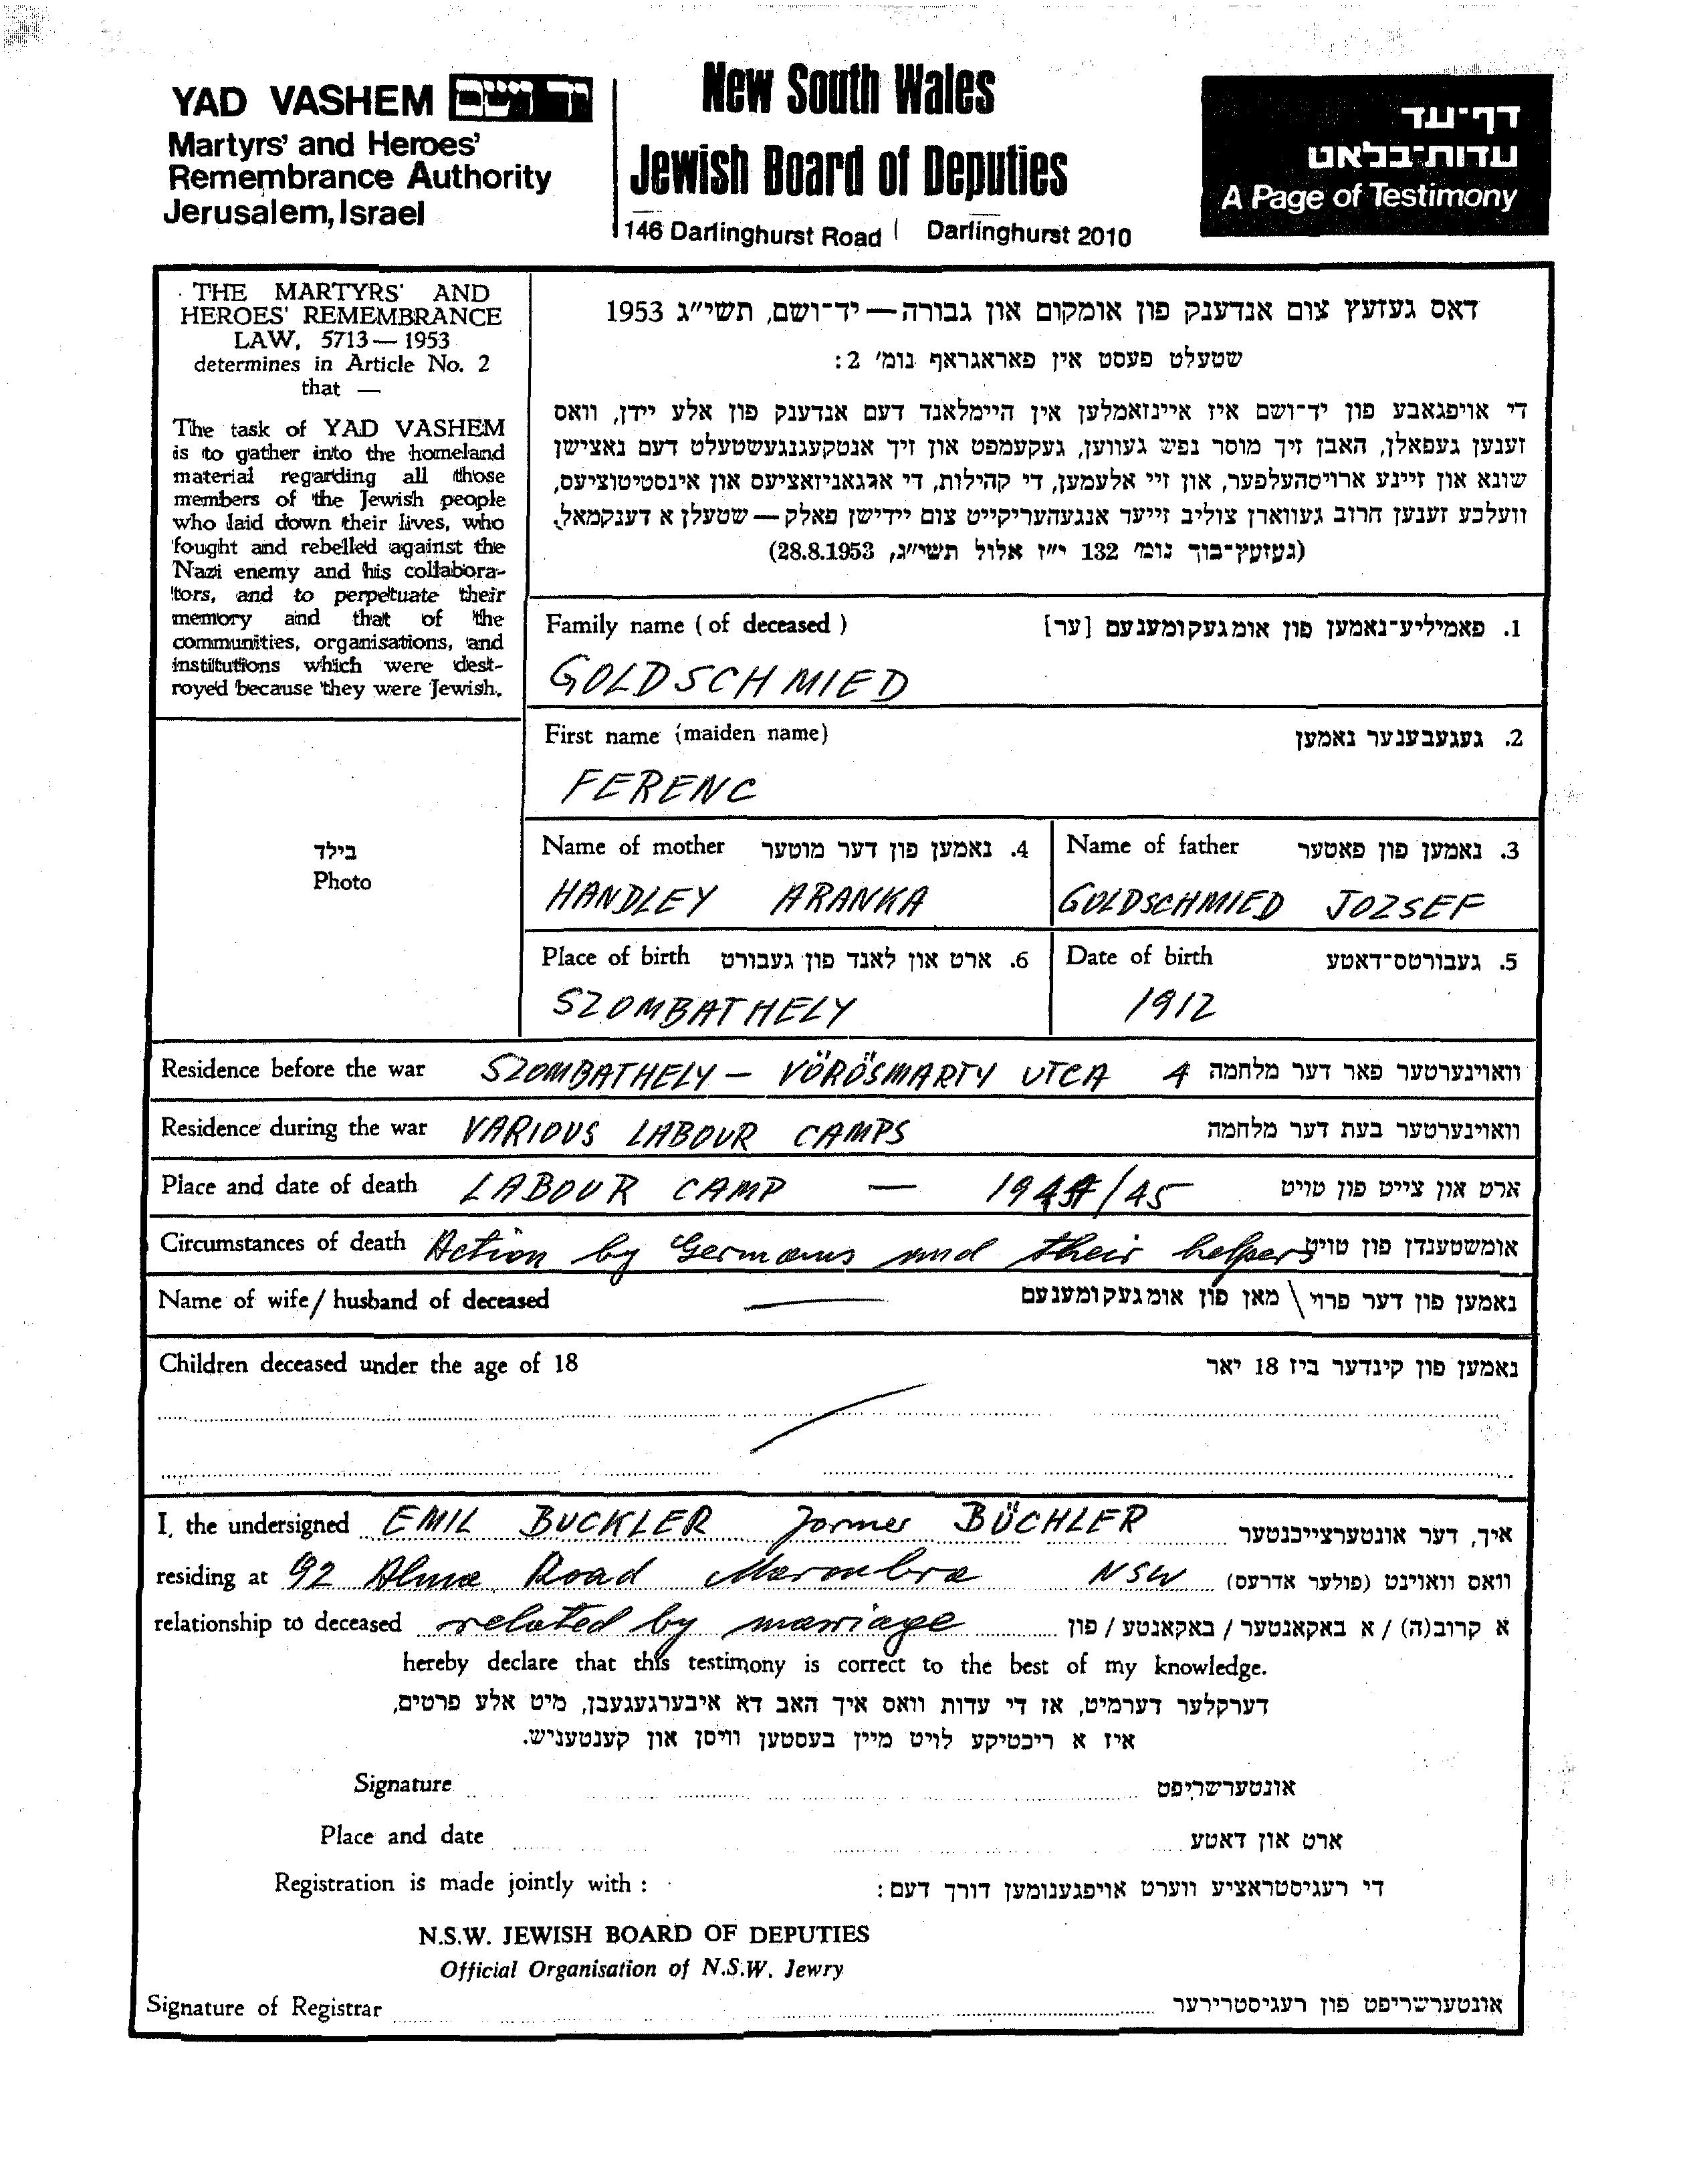 YAD VASHEM יד ושם
Martyrs' and Heroes'
Remembrance Authority
Jerusalem, Israel
New South Wales
Jewish Board of Deputies
146 Darlinghurst Road | Darlinghurst 2010
דף-עד
עדות-בלאט
A Page of Testimony
THE MARTYRS' AND
HEROES' REMEMBRANCE
LAW, 5713 — 1953
determines in Article No. 2
that —
The task of YAD VASHEM
is to gather into the homeland
material regarding all those
members of the Jewish people
who laid down their lives, who
fought and rebelled against the
Nazi enemy and his collabora-
tors, and to perpetuate their
memory and that of the
communities, organisations, and
institutions which were dest-
royed because they were Jewish.
דאס געזעץ צום אנדענק פון אומקום און גבורה — יד-ושם, תשי"ג 1953
שטעלט פעסט אין פאראגראף נומ' 2:
די אויפגאבע פון יד-ושם איז איינזאמלען אין היימלאנד דעם אנדענק פון אלע יידן, וואס
זענען געפאלן, האבן זיך מוסר נפש געווען, געקעמפט און זיך אנטקעגנגעשטעלט דעם נאצישן
שונא און זיינע ארויסהעלפער, און זיי אלעמען, די קהילות, די ארגאניזאציעס און אינסטיטוציעס,
וועלכע זענען חרוב געווארן צוליב זייער אנגעהעריקייט צום יידישן פאלק — שטעלן א דענקמאל.
(געזעץ-בוך נומ' 132 י"ז אלול תשי"ג, 28.8.1953)
Family name (of deceased) 1. פאמיליע-נאמען פון אומגעקומענעם [ער]
GOLDSCHMIED
First name (maiden name) 2. געגעבענער נאמען
FERENC
בילד
Photo
Name of mother 4. נאמען פון דער מוטער
HANDLEY ARANKA
Name of father 3. נאמען פון פאטער
GOLDSCHMIED JOZSEF
Place of birth 6. ארט און לאנד פון געבורט
SZOMBATHELY
Date of birth 5. געבורטס-דאטע
1912
Residence before the war SZOMBATHELY – VÖRÖSMARTY UTCA 4 וואוינערטער פאר דער מלחמה
Residence during the war VARIOUS LABOUR CAMPS וואוינערטער בעת דער מלחמה
Place and date of death LABOUR CAMP — 1944/45 ארט און צייט פון טויט
Circumstances of death Action by Germans and their helpers אומשטענדן פון טויט
Name of wife / husband of deceased — נאמען פון דער פרוי \ מאן פון אומגעקומענעם
Children deceased under the age of 18 נאמען פון קינדער ביז 18 יאר
I, the undersigned EMIL BUCKLER former BÜCHLER איך, דער אונטערצייכנטער
residing at 92 Alma Road Maroubra NSW וואס וואוינט (פולער אדרעס)
relationship to deceased related by marriage א קרוב(ה) / א באקאנטער / באקאנטע / פון
hereby declare that this testimony is correct to the best of my knowledge.
דערקלער דערמיט, אז די עדות וואס איך האב דא איבערגעגעבן, מיט אלע פרטים,
איז א ריכטיקע לויט מיין בעסטען וויסן און קענטעניש.
Signature אונטערשריפט
Place and date ארט און דאטע
Registration is made jointly with : די רעגיסטראציע ווערט אויפגענומען דורך דעם:
N.S.W. JEWISH BOARD OF DEPUTIES
Official Organisation of N.S.W. Jewry
Signature of Registrar אונטערשריפט פון רעגיסטרירער